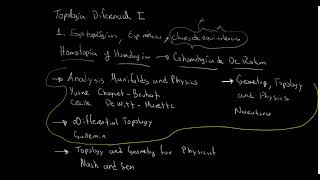 Topología Diferencial I
1. Esp. topológicos, Clases de equivalencia
Homotopía y Homología → Cohomología de De Rham
→ Analysis Manifolds and Physics
Yvone Choquet-Bruhat
Cecile DeWitt-Morette
→ Geometry, Topology
and Physics
Nakahara
→ Differential Topology
→ Topology and Geometry for Physicist
Nash and Sen